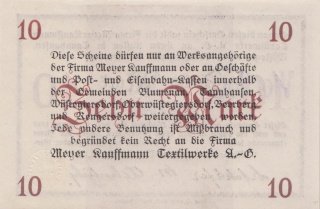 10 10
Diese Scheine dürfen nur an Werksangehörige
der Firma Meyer Kauffmann oder an Geschäfte
und Post- und Eisenbahn-Kassen innerhalb
der Gemeinden Blumenau, Tannhausen,
Wüstegiersdorf, Oberwüstegiersdorf,
und Rengersdorf weitergegeben werden.
Jede andere Benutzung ist Mißbrauch und
begründet kein Recht an die Firma
Meyer Kauffmann Textilwerke A.-G.
Zehn Mark
10 10